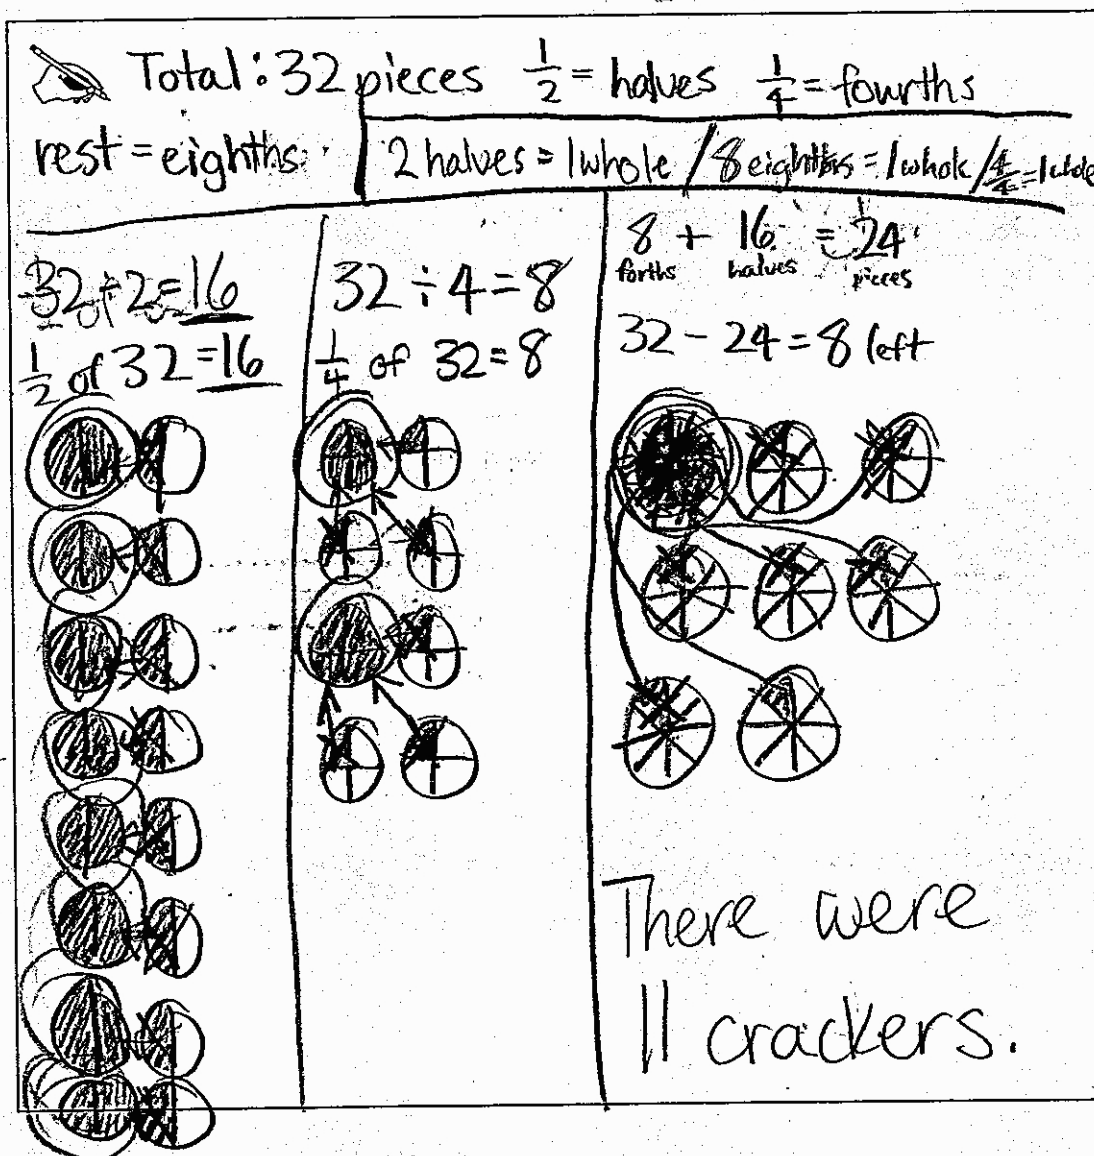 Total: 32 pieces 1/2 = halves 1/4 = fourths
rest = eighths
2 halves = 1 whole / 8 eighths = 1 whole / 4/4 = 1 whole
32 ÷ 2 = 16
1/2 of 32 = 16
32 ÷ 4 = 8
1/4 of 32 = 8
8 + 16 = 24
forths halves pieces
32 - 24 = 8 left
There were
11 crackers.